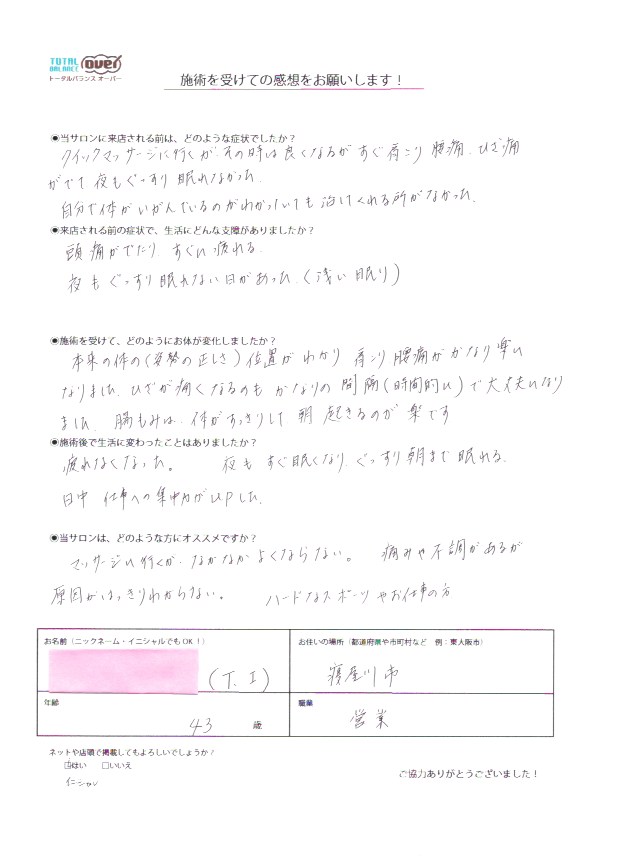 TOTAL BALANCE Over
トータルバランス オーバー
施術を受けての感想をお願いします！
◉当サロンに来店される前は、どのような症状でしたか？
クイックマッサージに行くが、その時は良くなるが すぐ肩こり 腰痛、ひざ痛
がでて 夜もぐっすり 眠れなかった。
自分で体がいがんでいるのがわかっていても 治してくれる所がなかった。
◉来店される前の症状で、生活にどんな支障がありましたか？
頭痛がでたり、すぐに疲れる。
夜も ぐっすり眠れない日があった。(浅い眠り)
◉施術を受けて、どのようにお体が変化しましたか？
本来の体の(姿勢の正しさ)位置がわかり 肩こり 腰痛がかなり楽に
なりました。ひざが痛くなるのも かなりの間隔(時間的に)で大丈夫になり
ました。腸もみは、体がすっきりして 朝 起きるのが 楽です
◉施術後で生活に変わったことはありましたか？
疲れなくなった。 夜も すぐ眠くなり、ぐっすり朝まで眠れる。
日中 仕事への集中力がUPした。
◉当サロンは、どのような方にオススメですか？
マッサージに行くが、なかなかよくならない。 痛みや不調があるが
原因がはっきりわからない。 ハードなスポーツやお仕事の方
お名前（ニックネーム・イニシャルでもOK！）
(T. I)
お住いの場所（都道府県や市町村など 例：東大阪市）
寝屋川市
年齢
43 歳
職業
営業
ネットや店頭で掲載してもよろしいでしょうか？
☑はい □いいえ
イニシャル
ご協力ありがとうございました！